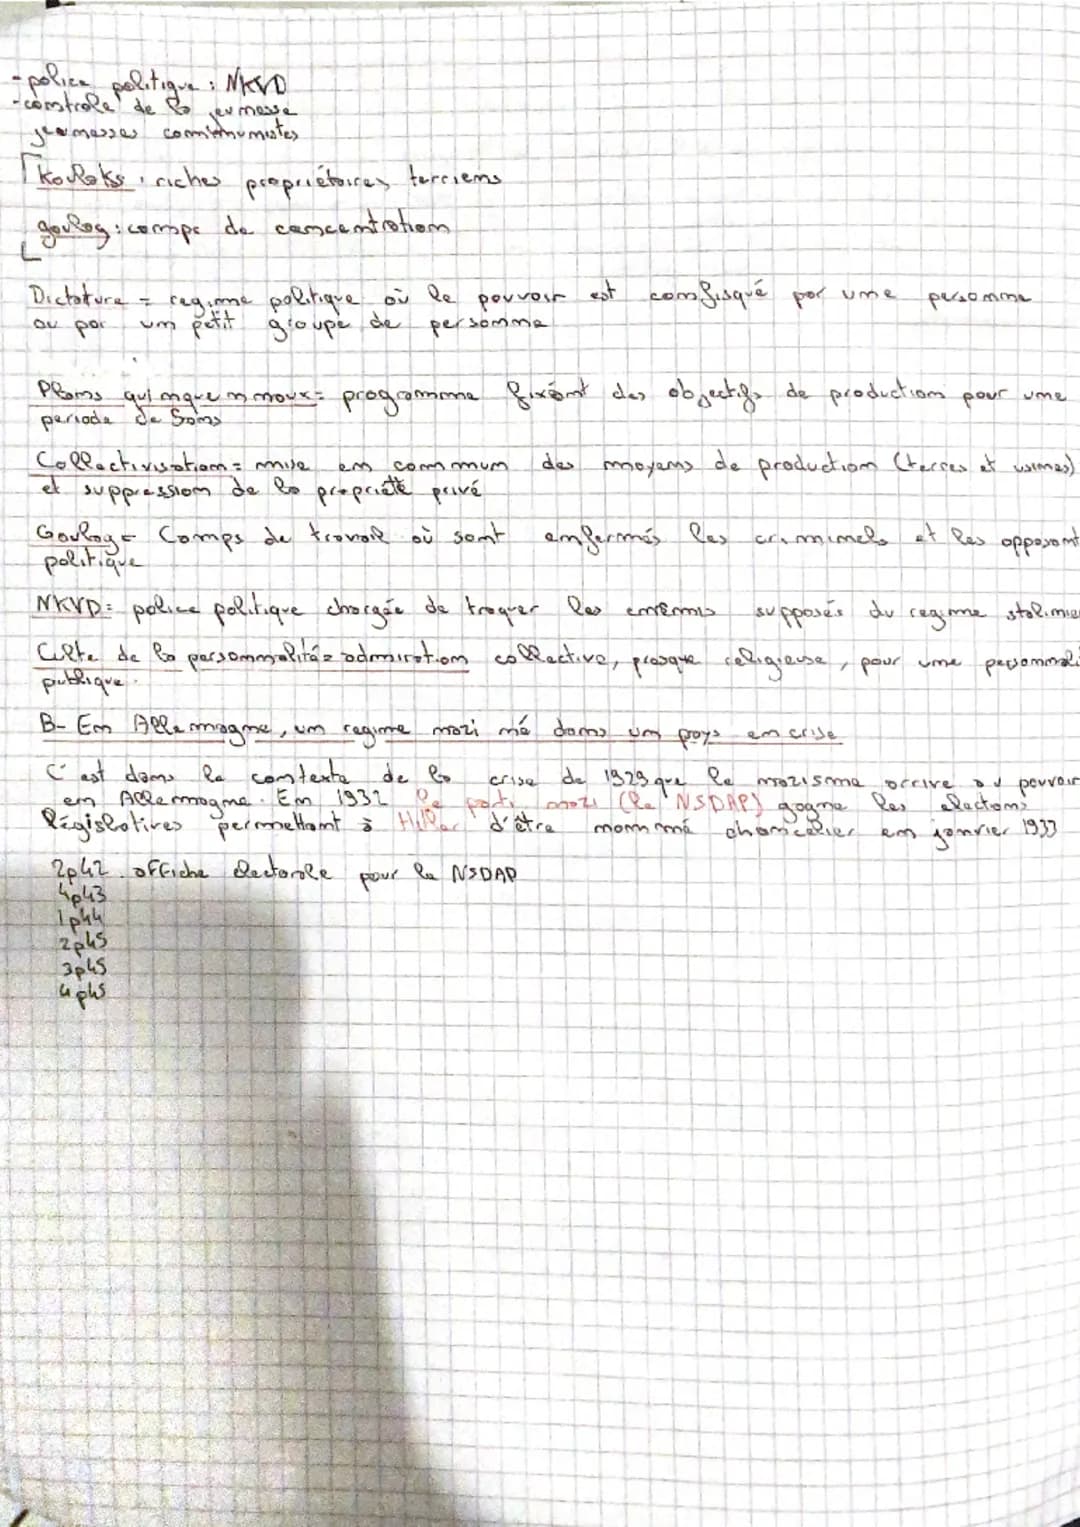 - police politique : NKVD
- controle de la jeunesse
jeunesses communistes
koulaks : riches propriétaires terriens
goulag : camps de concentration
Dictature = regime politique où le pouvoir est confisqué par une personne
ou par un petit groupe de personne
Plans quinquennaux = programme fixant des objectifs de production pour une
periode de 5ans
Collectivisation = mise en commun des moyens de production (terres et usines)
et suppression de la propriété privé
Goulag = Camps de travail où sont enfermés les criminels et les opposant
politique
NKVD = police politique chargée de traquer les ennemis supposés du regime stalinien
Culte de la personnalité = admiration collective, presque religieuse, pour une personnali
publique.
B- En Allemagne, un regime nazi né dans un pays en crise
C'est dans le contexte de la crise de 1929 que le nazisme arrive au pouvoir
en Allemagne. En 1932 le parti nazi (le NSDAP) gagne les elections
législatives permettant à Hitler d'être nommé chancelier en janvier 1933
2p42. affiche électorale pour le NSDAP
4p43
1p44
2p45
3p45
4p45